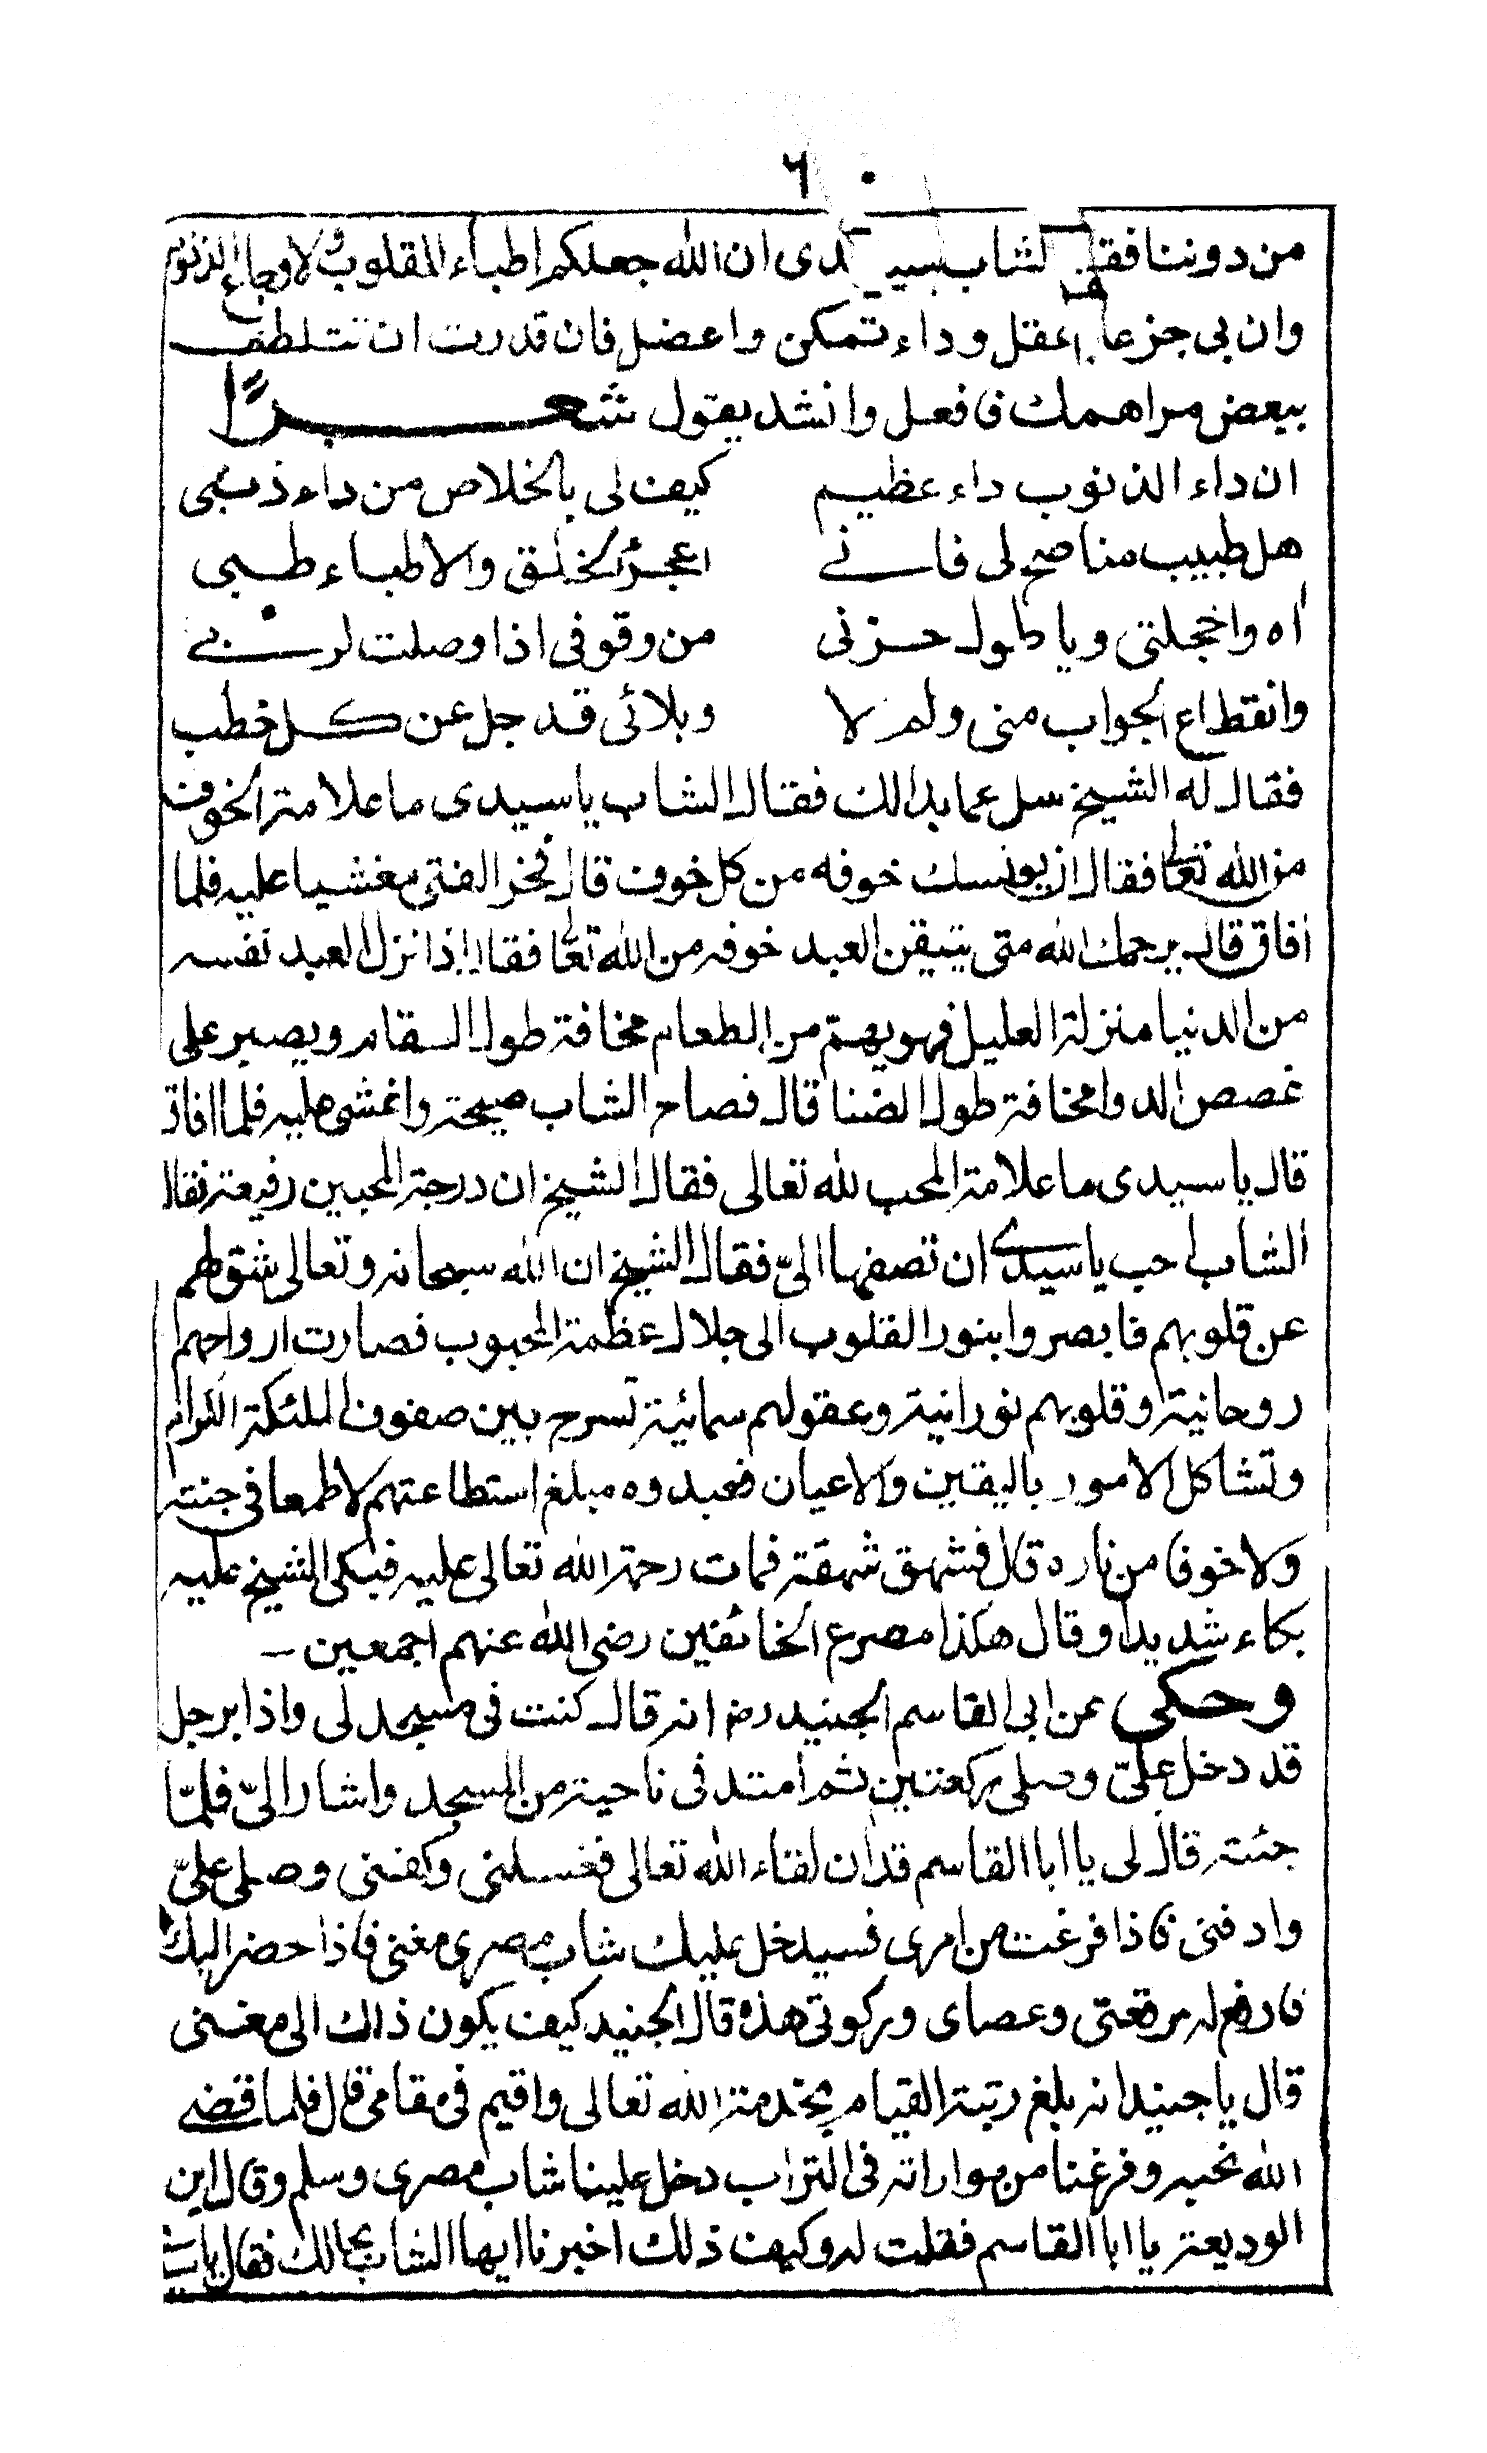 ٦٠
من دوننا فقال الشاب سيدى ان الله جعلكم اطباء القلوب ولاوجاع الذنوب
وان بى جرحا عقل وداء تمكن واعضل فان قدرت ان تتلطف
ببعض مراهمك فافعل وانشد يقول شعرًا
ان داء الذنوب داء عظيم كيف لى بالخلاص من داء ذنبى
هل طبيب مناصح لى فانے اعجز الخلق والاطباء طبى
اه واخجلتى ويا طول حزنى من وقوفى اذا وصلت لربے
وانقطاع الجواب منى ولم لا وبلائى قد جل عن كل خطب
فقال له الشيخ سل عما بدالك فقال الشاب ياسيدى ما علامة الخوف
من الله تعا فقال ان يونسك خوفه من كل خوف قال فخر الفتى مغشيا عليه فلما
افاق قال يرحمك الله متى يتيقن العبد خوفه من الله تعا فقال اذا نزل العبد نفسه
من الدنيا منزلة العليل فهو يهتم من الطعام مخافة طول السقام ويصبر على
غصص الدوا مخافة طول الضنا قال فصاح الشاب صيحة وانمشى عليه فلما افاق
قال ياسيدى ما علامة المحب لله تعالى فقال الشيخ ان درجة المحبين رفيعة فقال
الشاب احب ياسيدى ان تصفها الىّ فقال الشيخ ان الله سبحانه وتعالى شق لهم
عن قلوبهم فابصروا بنور القلوب الى جلال عظمة المحبوب فصارت ارواحهم
روحانية وقلوبهم نورانية وعقولهم سمائية تسرح بين صفوف الملئكة الكرام
وتشاكل الامور باليقين والاعيان فعبدوه مبلغ استطاعتهم لاطمعا فى جنته
ولاخوفا من ناره قال فشهق شهقة فمات رحمة الله تعالى عليه فبكى الشيخ عليه
بكاء شديدا وقال هكذا مصرع الخائفين رضى الله عنهم اجمعين ـ
وحكى عن ابى القاسم الجنيد رض انه قال كنت فى مسجد لى واذا برجل
قد دخل علىّ وصلى ركعتين ثم امتد فى ناحية من المسجد واشار الىّ فلمّا
جئته قال لى يا ابا القاسم قد ان لقاء الله تعالى فغسلنى وكفنى وصلى علىّ
وادفنى فاذا فرغت من امرى فسيدخل عليك شاب مصرى مغنى فاذا حضر اليك
فادفع له مرقعتى وعصاى وركوتى هذه قال الجنيد كيف يكون ذاك الى مغنى
قال ياجنيد انه بلغ رتبة القيام بخدمة الله تعالى واقيم فى مقامى قال فلما قضے
الله نحبه وفرغنا من مواراته فى التراب دخل علينا شاب مصرى وسلم وقال اين
الوديعة يا ابا القاسم فقلت له وكيف ذلك اخبرنا ايها الشاب بحالك فقال